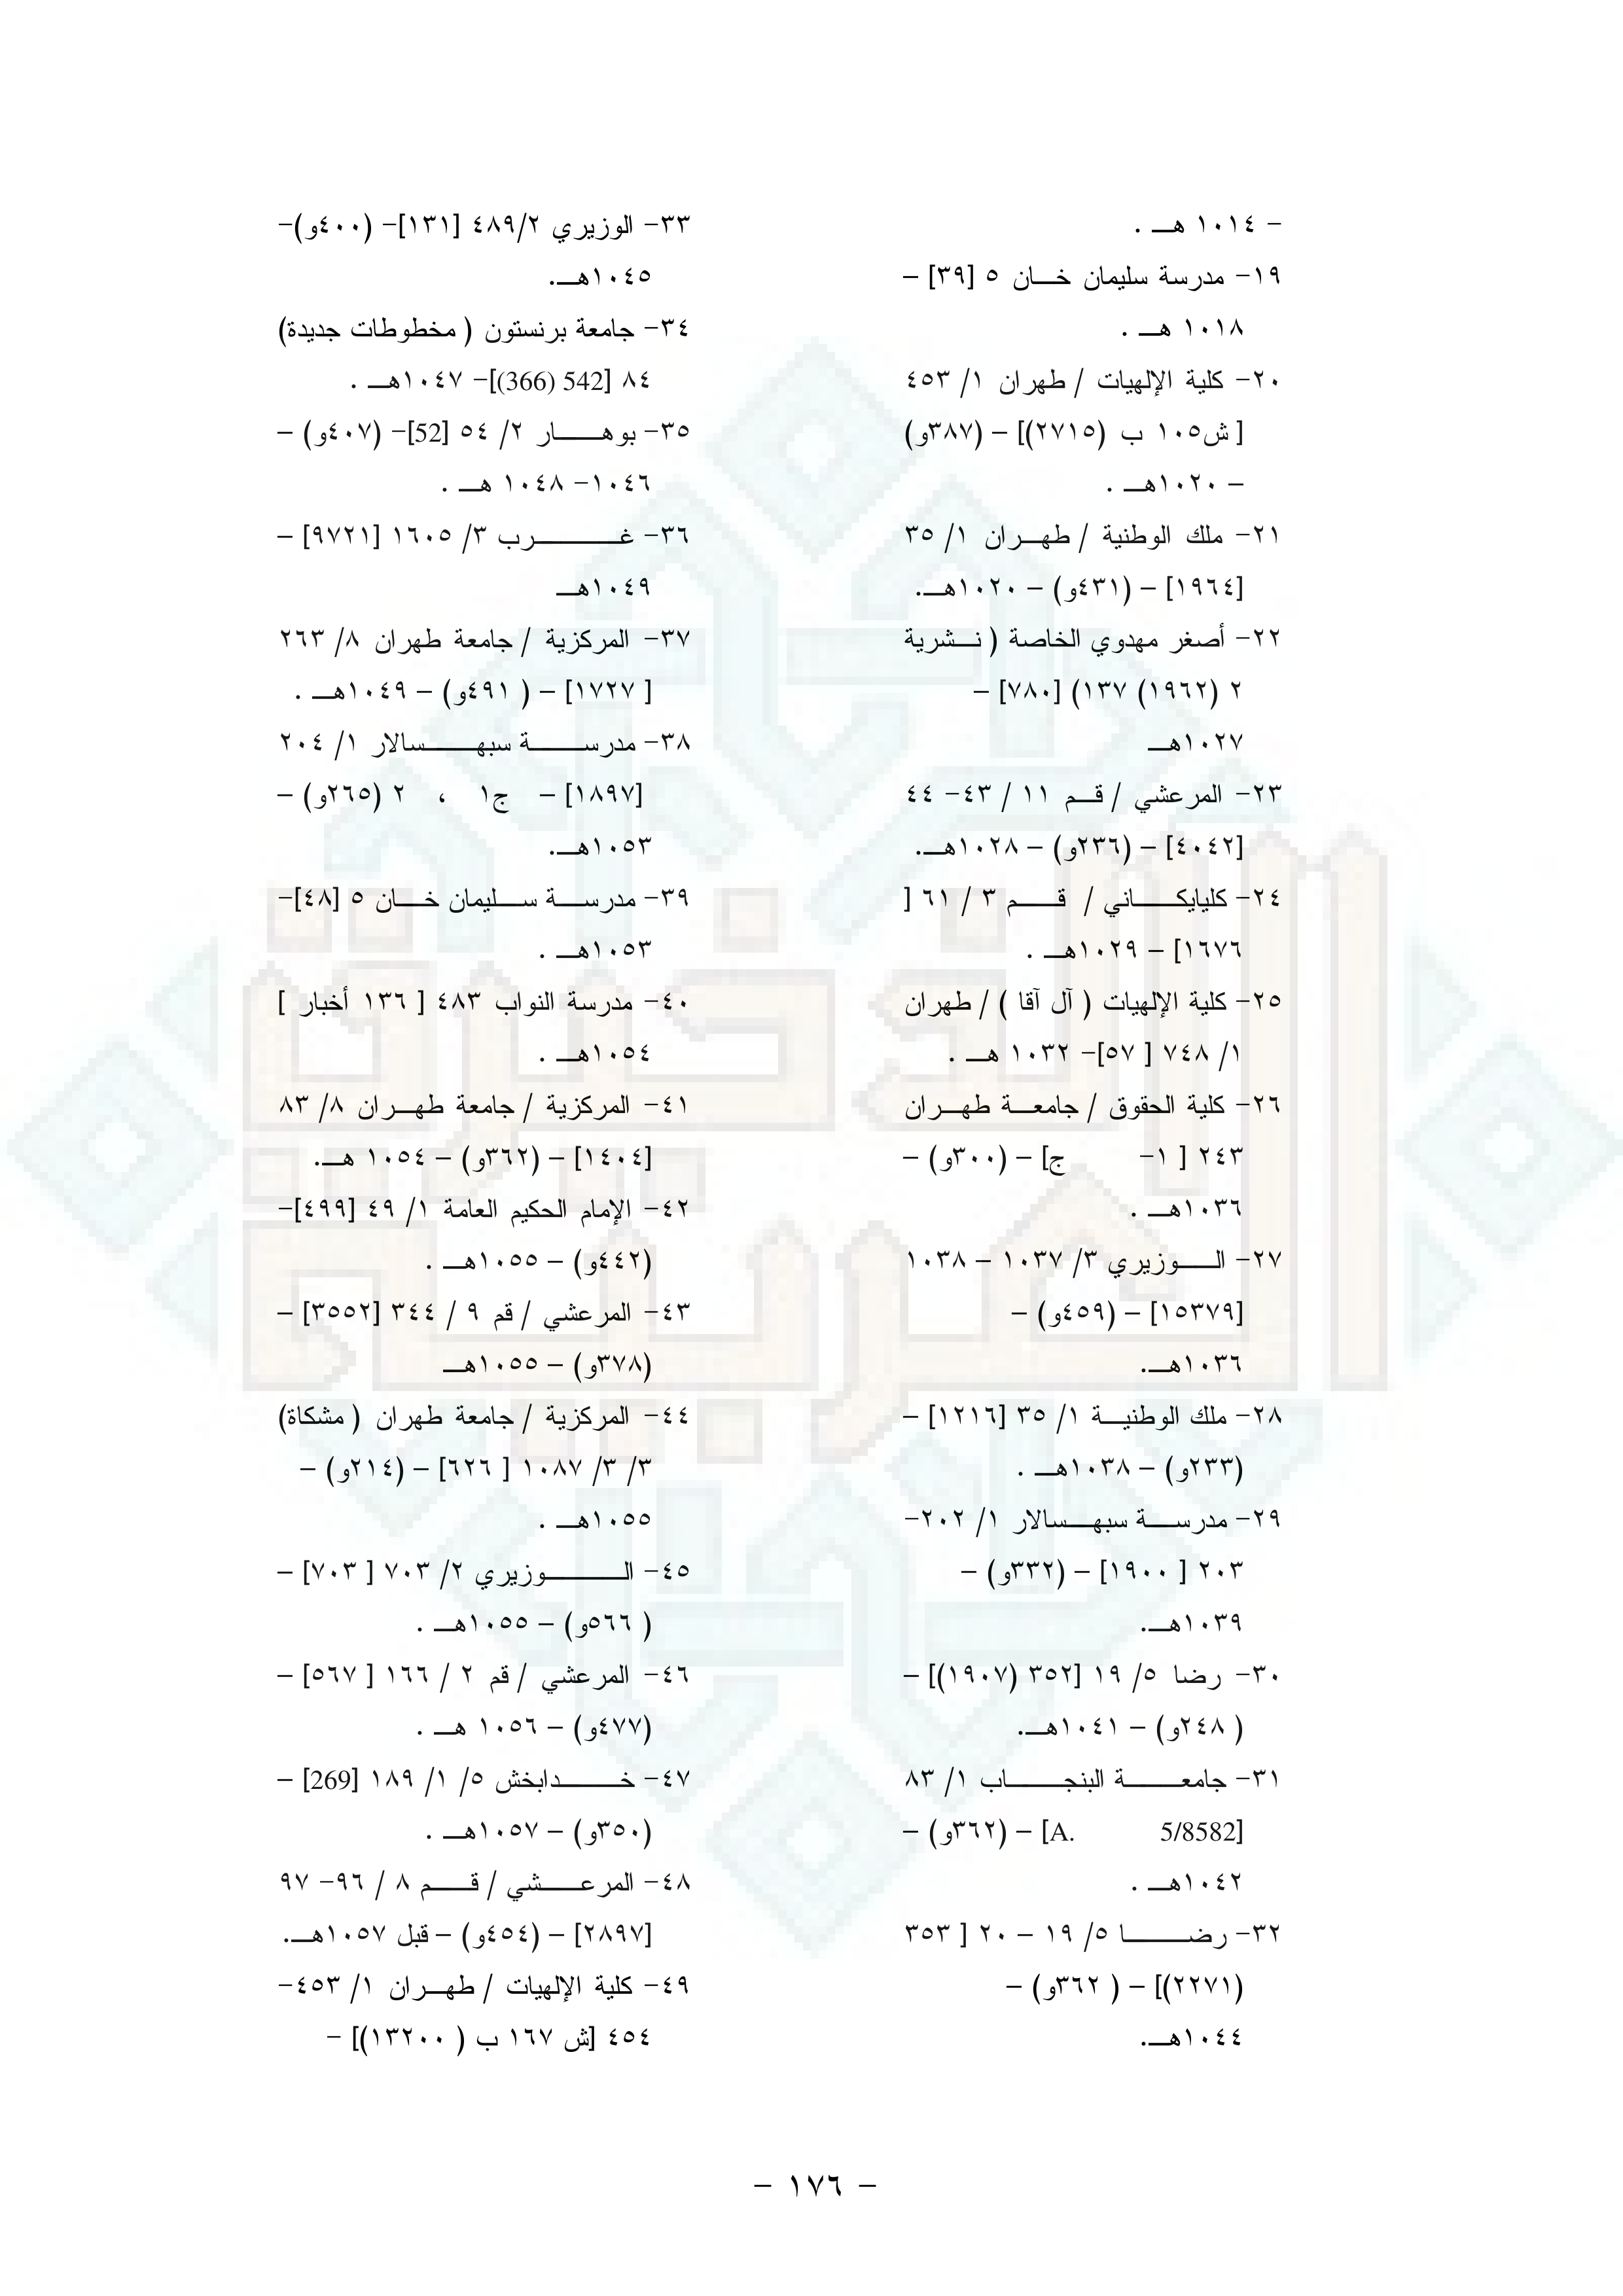 - ١٠١٤ هـ .
١٩- مدرسة سليمان خان ٥ [٣٩] –
١٠١٨ هـ .
٢٠- كلية الإلهيات / طهران ١/ ٤٥٣
[ ش١٠٥ ب (٢٧١٥)] – (٣٨٧و)
– ١٠٢٠هـ .
٢١- ملك الوطنية / طهران ١/ ٣٥
[١٩٦٤] – (٤٣١و) – ١٠٢٠هـ.
٢٢- أصغر مهدوي الخاصة ( نشرية
٢ (١٩٦٢) ١٣٧) [٧٨٠] –
١٠٢٧هـ
٢٣- المرعشي / قم ١١ / ٤٣- ٤٤
[٤٠٤٢] – (٢٣٦و) – ١٠٢٨هـ.
٢٤- كليايكاني / قم ٣ / ٦١ [
١٦٧٦] – ١٠٢٩هـ .
٢٥- كلية الإلهيات ( آل آقا ) / طهران
١/ ٧٤٨ [ ٥٧]- ١٠٣٢ هـ .
٢٦- كلية الحقوق / جامعة طهران
٢٤٣ [ ١- ج] – (٣٠٠و) –
١٠٣٦هـ .
٢٧- الوزيري ٣/ ١٠٣٧ – ١٠٣٨
[١٥٣٧٩] – (٤٥٩و) –
١٠٣٦هـ.
٢٨- ملك الوطنية ١/ ٣٥ [١٢١٦] –
(٢٣٣و) – ١٠٣٨هـ .
٢٩- مدرسة سبهسالار ١/ ٢٠٢-
٢٠٣ [ ١٩٠٠] – (٣٣٢و) –
١٠٣٩هـ.
٣٠- رضا ٥/ ١٩ [٣٥٢ (١٩٠٧)] –
( ٢٤٨و) – ١٠٤١هـ.
٣١- جامعة البنجاب ١/ ٨٣
[A. 5/8582] – (٣٦٢و) –
١٠٤٢هـ .
٣٢- رضا ٥/ ١٩ – ٢٠ [ ٣٥٣
(٢٢٧١)] – ( ٣٦٢و) –
١٠٤٤هـ.
٣٣- الوزيري ٤٨٩/٢ [١٣١]- (٤٠٠و)-
١٠٤٥هـ.
٣٤- جامعة برنستون ( مخطوطات جديدة)
٨٤ [542 (366)]- ١٠٤٧هـ .
٣٥- بوهار ٢/ ٥٤ [52]- (٤٠٧و) –
١٠٤٦- ١٠٤٨ هـ .
٣٦- غرب ٣/ ١٦٠٥ [٩٧٢١] –
١٠٤٩هـ
٣٧- المركزية / جامعة طهران ٨/ ٢٦٣
[ ١٧٢٧] – ( ٤٩١و) – ١٠٤٩هـ .
٣٨- مدرسة سبهسالار ١/ ٢٠٤
[١٨٩٧] – ج١ ، ٢ (٢٦٥و) –
١٠٥٣هـ.
٣٩- مدرسة سليمان خان ٥ [٤٨]-
١٠٥٣هـ .
٤٠- مدرسة النواب ٤٨٣ [ ١٣٦ أخبار ]
١٠٥٤هـ .
٤١- المركزية / جامعة طهران ٨/ ٨٣
[١٤٠٤] – (٣٦٢و) – ١٠٥٤ هـ.
٤٢- الإمام الحكيم العامة ١/ ٤٩ [٤٩٩]-
(٤٤٢و) – ١٠٥٥هـ .
٤٣- المرعشي / قم ٩ / ٣٤٤ [٣٥٥٢] –
(٣٧٨و) – ١٠٥٥هـ
٤٤- المركزية / جامعة طهران ( مشكاة)
٣/ ٣/ ١٠٨٧ [ ٦٢٦] – (٢١٤و) –
١٠٥٥هـ .
٤٥- الوزيري ٢/ ٧٠٣ [ ٧٠٣] –
( ٥٦٦و) – ١٠٥٥هـ .
٤٦- المرعشي / قم ٢ / ١٦٦ [ ٥٦٧] –
(٤٧٧و) – ١٠٥٦ هـ .
٤٧- خدابخش ٥/ ١/ ١٨٩ [269] –
(٣٥٠و) – ١٠٥٧هـ .
٤٨- المرعشي / قم ٨ / ٩٦- ٩٧
[٢٨٩٧] – (٤٥٤و) – قبل ١٠٥٧هـ.
٤٩- كلية الإلهيات / طهران ١/ ٤٥٣-
٤٥٤ [ش ١٦٧ ب ( ١٣٢٠٠)] -
– ١٧٦ –